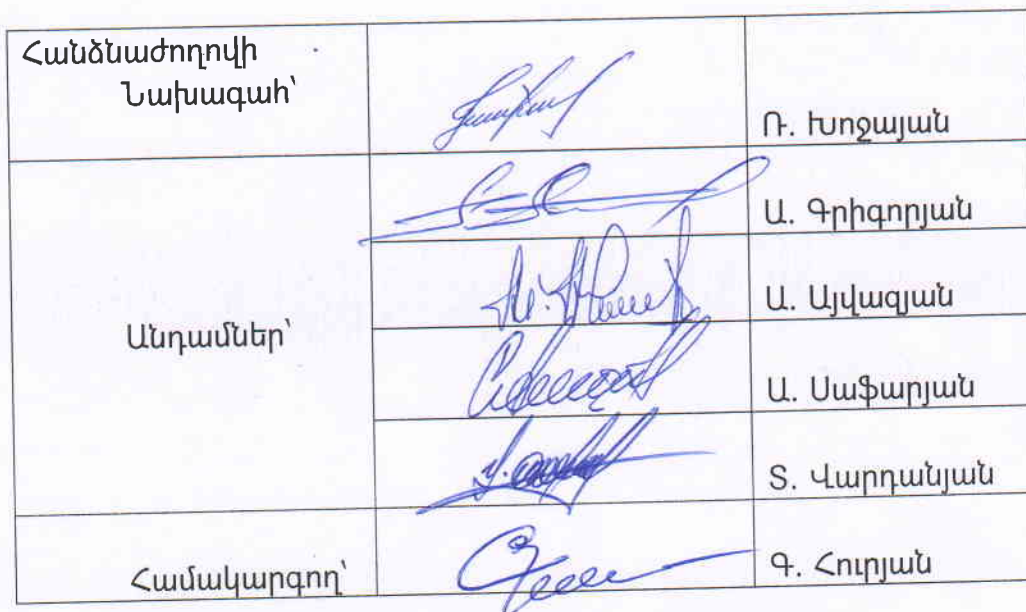 Հանձնաժողովի
Նախագահ՝
Ռ. Խոջայան
Ա. Գրիգորյան
Ա. Այվազյան
Անդամներ՝
Ա. Սաֆարյան
Տ. Վարդանյան
Համակարգող՝
Գ. Հուրյան